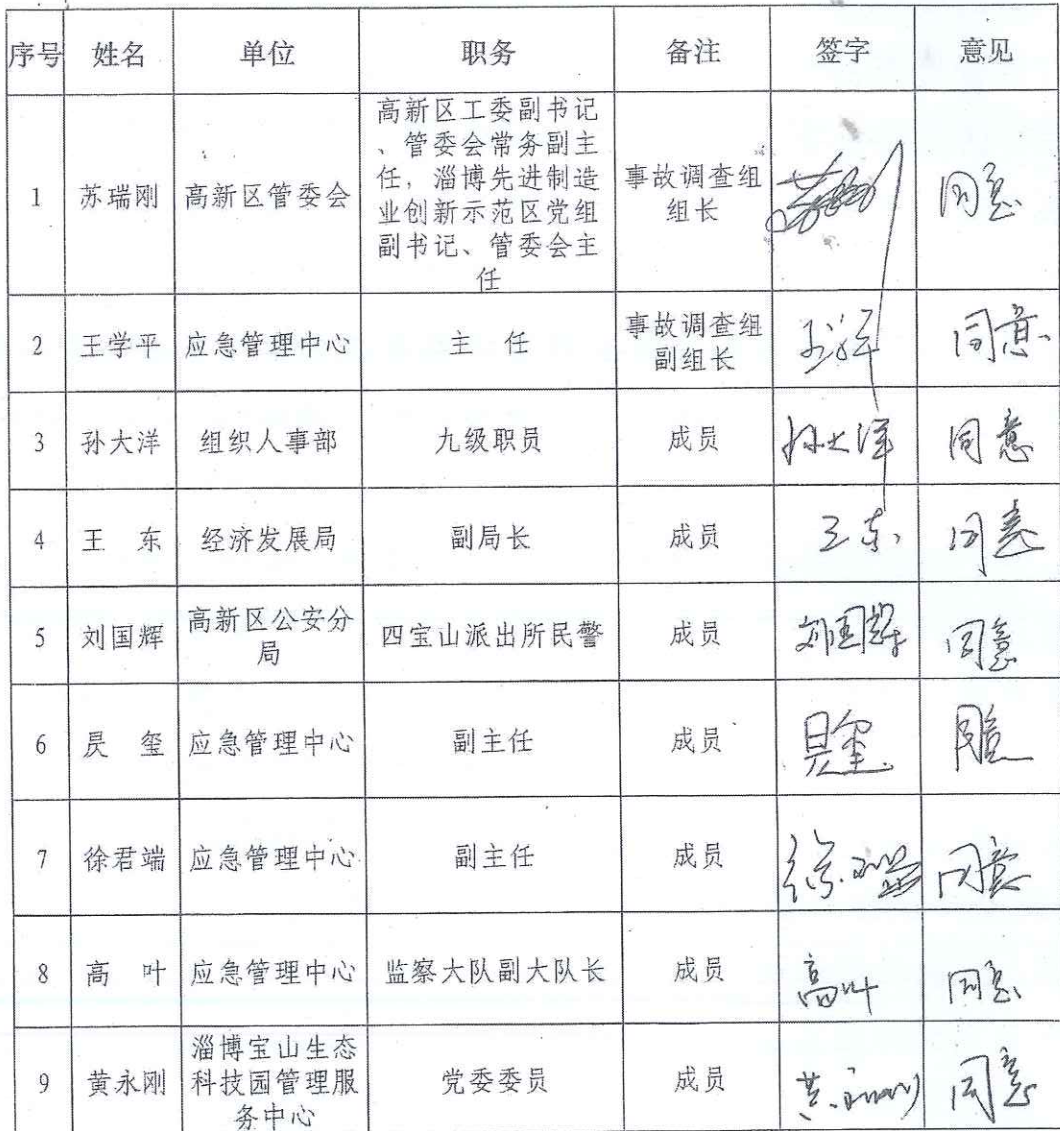 序号 姓名 单位 职务 备注 签字 意见
1 苏瑞刚 高新区管委会 高新区工委副书记
、管委会常务副主
任，淄博先进制造
业创新示范区党组
副书记、管委会主
任 事故调查组
组长 同意
2 王学平 应急管理中心 主 任 事故调查组
副组长 同意
3 孙大洋 组织人事部 九级职员 成员 孙大洋 同意
4 王 东 经济发展局 副局长 成员 王东 同意
5 刘国辉 高新区公安分
局 四宝山派出所民警 成员 刘国辉 同意
6 昃 玺 应急管理中心 副主任 成员 昃玺 同意
7 徐君端 应急管理中心 副主任 成员 同意
8 高 叶 应急管理中心 监察大队副大队长 成员 高叶 同意
9 黄永刚 淄博宝山生态
科技园管理服
务中心 党委委员 成员 黄永刚 同意